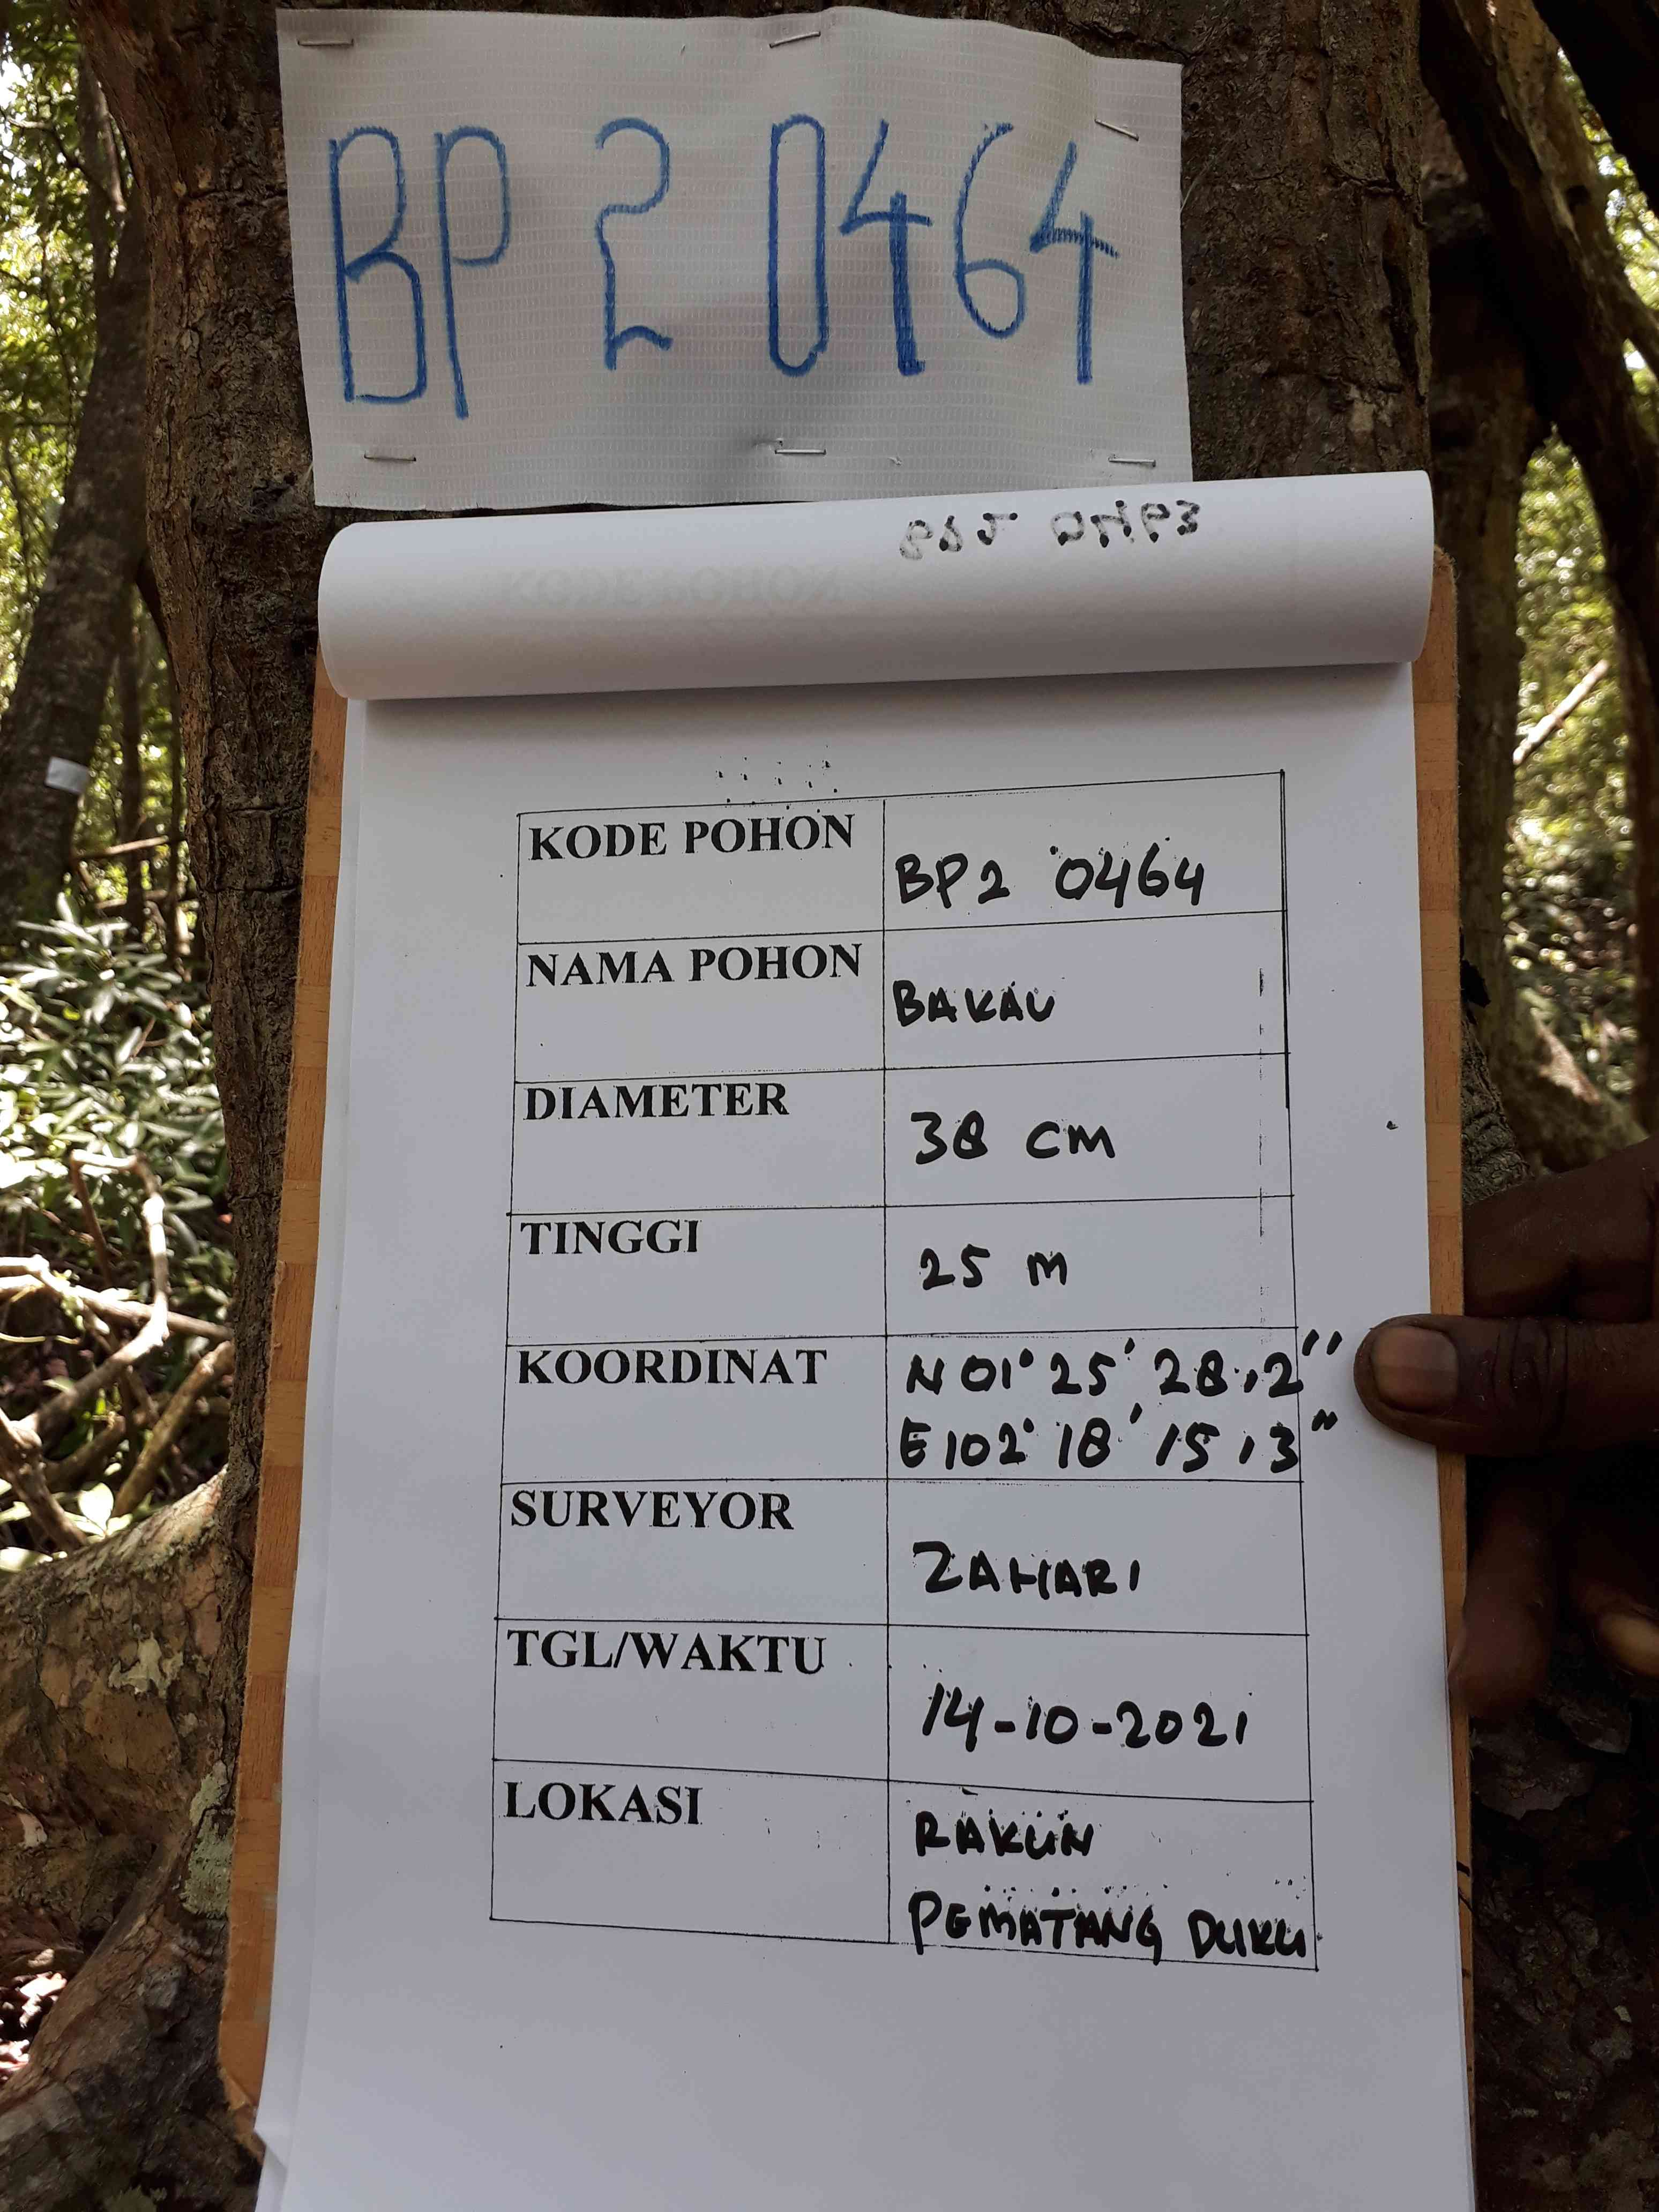 BP 2 0464
KODE POHON
BP2 0464
NAMA POHON
BAKAU
DIAMETER
38 cm
TINGGI
25 m
KOORDINAT
N 01° 25' 28,2"
E 102° 18' 15,3"
SURVEYOR
ZAHARI
TGL/WAKTU
14-10-2021
LOKASI
RAKUN
PEMATANG DUKU